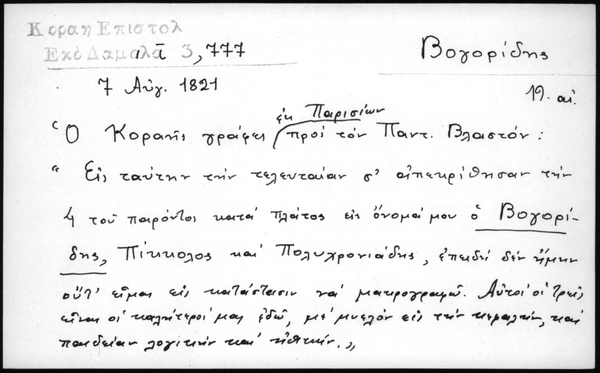 Κοραη Επιστολ
Εκδ Δαμαλά 1, ᾱ 3, 777
Βογορίδης
7 Αὐγ. 1821
19. αἰ.
ἐκ Παρισίων
Ὁ Κοραῆς γράφει πρὸς τὸν Παντ. Βλαστόν:
"Εἰς ταύτην τὴν τελευταίαν σ' ἀπεκρίθησαν τὴν
4 τοῦ παρόντος κατὰ πλάτος εἰς ὄνομά μου ὁ Βογορί-
δης, Πίκκολος καὶ Πολυχρονιάδης, ἐπειδὴ δὲν ἤμην
οὔτ' εἶμαι εἰς κατάστασιν νὰ μακρογραφῶ. Αὐτοὶ οἱ τρεῖς
εἶναι οἱ καλήτεροί μας ἐδῶ, μὲ μυελὸν εἰς τὴν κεφαλήν, καὶ
παιδείαν λογικὴν καὶ ἠθικήν.»